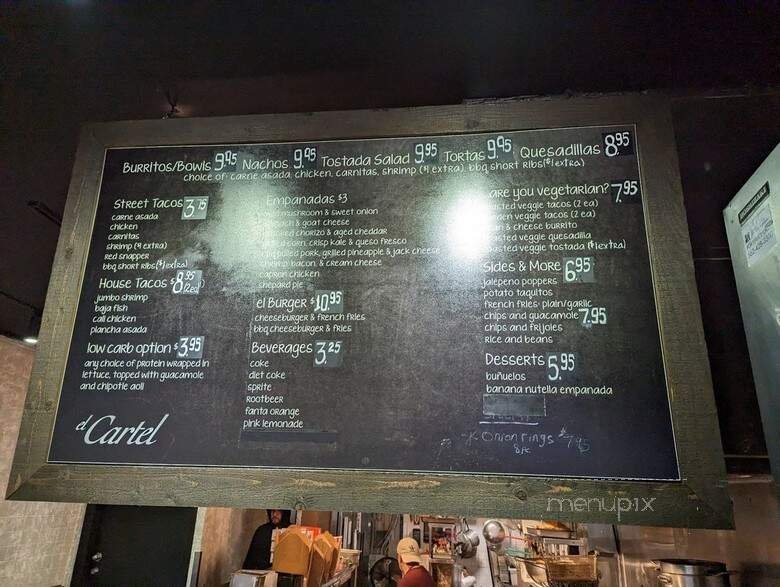 Burritos/Bowls 9.95 Nachos 9.95 Tostada Salad 9.95 Tortas 9.95 Quesadillas 8.95
choice of: carne asada, chicken, carnitas, shrimp ($1 extra), bbq short ribs($1 extra)
Street Tacos 3.75
carne asada
chicken
carnitas
shrimp ($1 extra)
red snapper
bbq short ribs($1 extra)
House Tacos $8.95
(2ea)
jumbo shrimp
baja fish
cali chicken
plancha asada
low carb option $3.95
any choice of protein wrapped in
lettuce, topped with guacamole
and chipotle aoli
el Cartel
Empanadas $3
mushroom & sweet onion
& goat cheese
chorizo & aged cheddar
corn, crisp kale & queso fresco
pulled pork, grilled pineapple & jack cheese
shrimp, bacon, & cream cheese
chicken
shepard pie
el Burger $10.95
cheeseburger & french fries
bbq cheeseburger & fries
Beverages 3.25
coke
diet coke
sprite
rootbeer
fanta orange
pink lemonade
are you vegetarian? 7.95
veggie tacos (2 ea)
veggie tacos (2 ea)
& cheese burrito
veggie quesadilla
veggie tostada ($1 extra)
Sides & More 6.95
jalepeno poppers
potato taquitos
french fries: plain/garlic
chips and guacamole 7.95
chips and frijoles
rice and beans
Desserts 5.95
buñuelos
banana nutella empanada
Onion rings $7.95
menupix